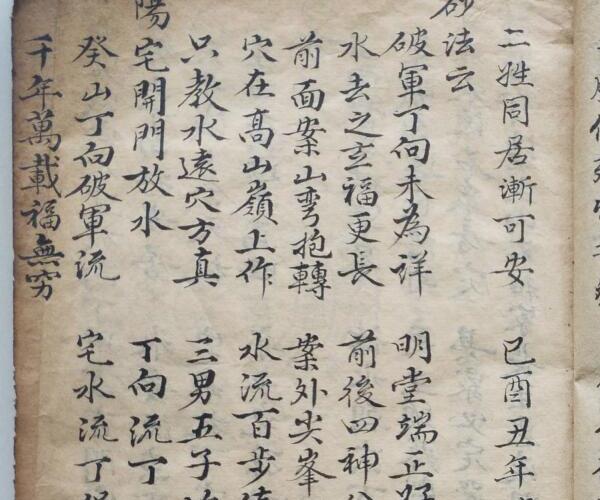 二姓同居漸可安　巳酉丑年
砂法云
破軍丁向未為詳　明堂端正好
水去之玄福更長　前後四神
前面案山彎抱轉　案外尖峯
穴在高山嶺上作　水流百步
只教水遠穴方真　三男五子
陽宅開門放水　丁向流丁
癸山丁向破軍流　宅水流丁
千年萬載福無穷